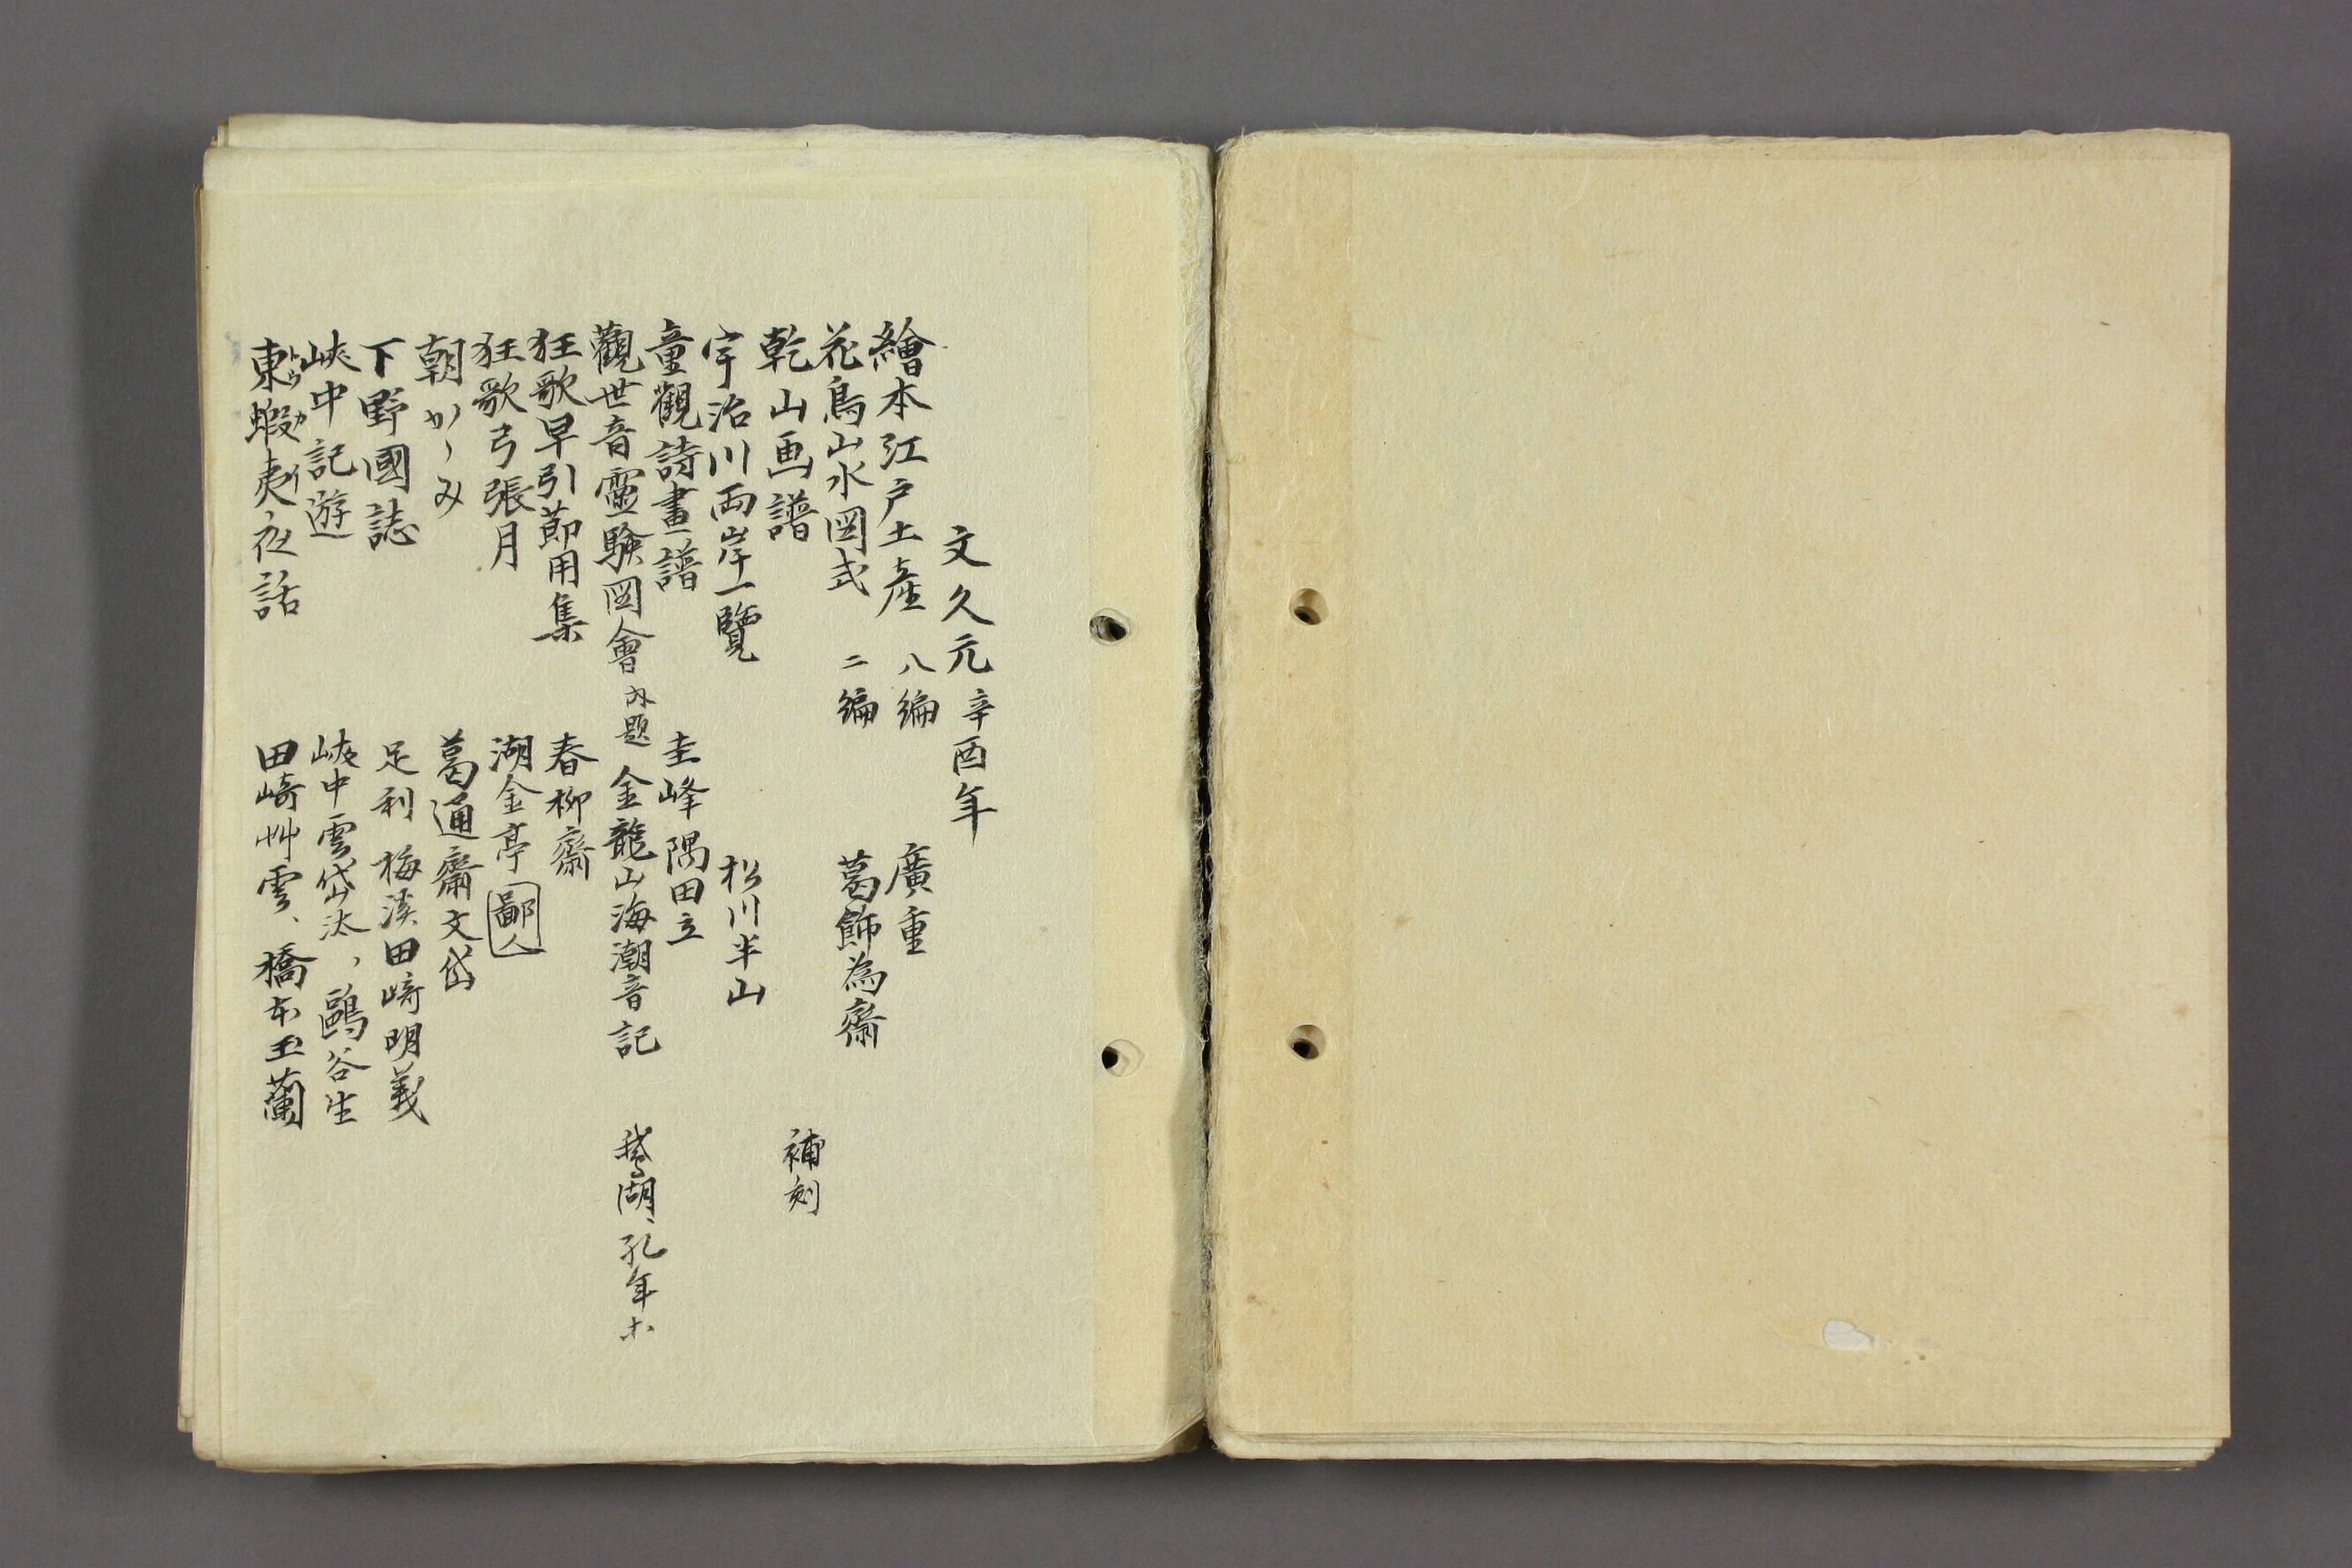 文久元辛酉年
繪本江戸土産 八編 廣重
花鳥山水図式 二編 葛飾為齋
乾山画譜 補刻
宇治川両岸一覽 松川半山
童觀詩畫譜 圭峰隅田立
觀世音靈驗図會 内題 金龍山海潮音記 鵞湖、孔年
狂歌早引節用集 春柳齋
狂歌弓張月 湖金亭 鄙人
朝かゝみ 葛通齋文岱
下野國誌 足利 梅溪田﨑明義
峽中記遊 峽中雲岱汰、鷗谷生
東蝦夷夜話 トウカイ 田﨑艸雲、橋本玉蘭